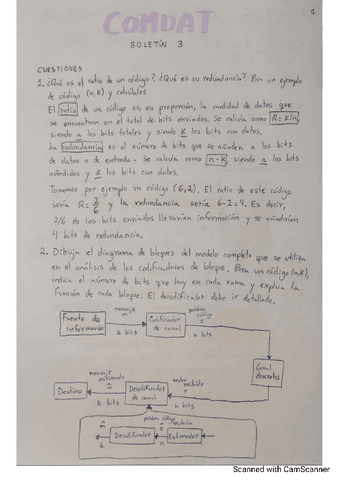 1
COMDAT
BOLETÍN 3
CUESTIONES
1. ¿Qué es el ratio de un código? ¿Qué es su redundancia? Pon un ejemplo
de código (n,k) y calcúlalos
El ratio de un código es, en proporción, la cantidad de datos que
se encuentran en el total de bits enviados. Se calcula como R=k/n,
siendo n los bits totales y siendo k los bits con datos.
La redundancia es el número de bits que se añaden a los bits
de datos o de entrada. Se calcula como n-k, siendo n los bits
añadidos y k los bits con datos.
Tomemos por ejemplo un código (6,2). El ratio de este código
sería R=2/6 y la redundancia sería 6-2=4. Es decir,
2/6 de los bits enviados llevarían información y se añadirían
4 bits de redundancia.
2. Dibuja el diagrama de bloques del modelo completo que se utiliza
en el análisis de los codificadores de bloque. Para un código (n,k),
indica el número de bits que hay en cada rama y explica la
función de cada bloque. El decodificador debe ir detallado.
Fuente de información
mensaje
m
k bits
Codificador de canal
palabra código
c
n bits
Canal discreto
vector recibido
r
n bits
Decodificador de canal
mensaje estimado
m̂
k bits
Destino
m̂
k
Decodificador
palabra código estimada
ĉ
n
Estimador
Scanned with CamScanner